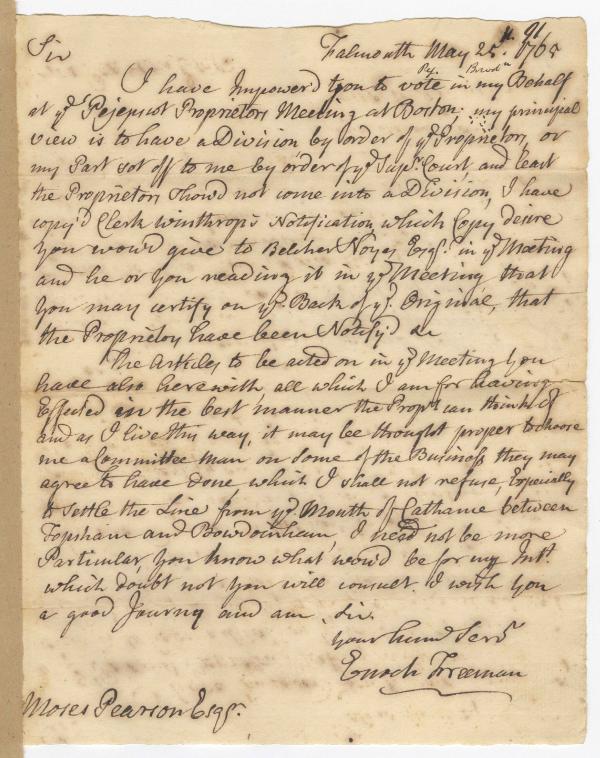 11. 91
Sir Falmouth May 25. 1765
Pej. Bowdn
I have Impower'd you to vote in my Behalf
at ye Pejepscot Proprietors Meeting at Boston, my principal
view is to have a Division by order of ye Proprietors, or
my Part set off to me by order of ye Supr. Court, and least
the Proprietors Shou'd not come into a Division, I have
copy'd Clerk Winthrop's Notification, which Copy, desire
you wou'd give to Belcher Noyes Esqr. in ye Meeting
and he or you reading it in ye Meeting that
you may certify on ye Back of ye Original, that
the Proprietors have been Notify'd &c
The Articles to be acted on in ye Meeting you
have also herewith, all which I am for having
Effected in the best manner the Proprs can think of
and as I live this way, it may be thought proper to choose
me a Committee man on some of the Business they may
agree to have done which I shall not refuse, Especially
to settle the Line from ye Mouth of Cathance between
Topsham and Bowdoinham, I need not be more
Particular, you know what wou'd be for my Intt.
which doubt not you will consult. I wish you
a good Journy and am, Sir,
your hum Servt
Enoch Freeman
Moses Pearson Esqr.